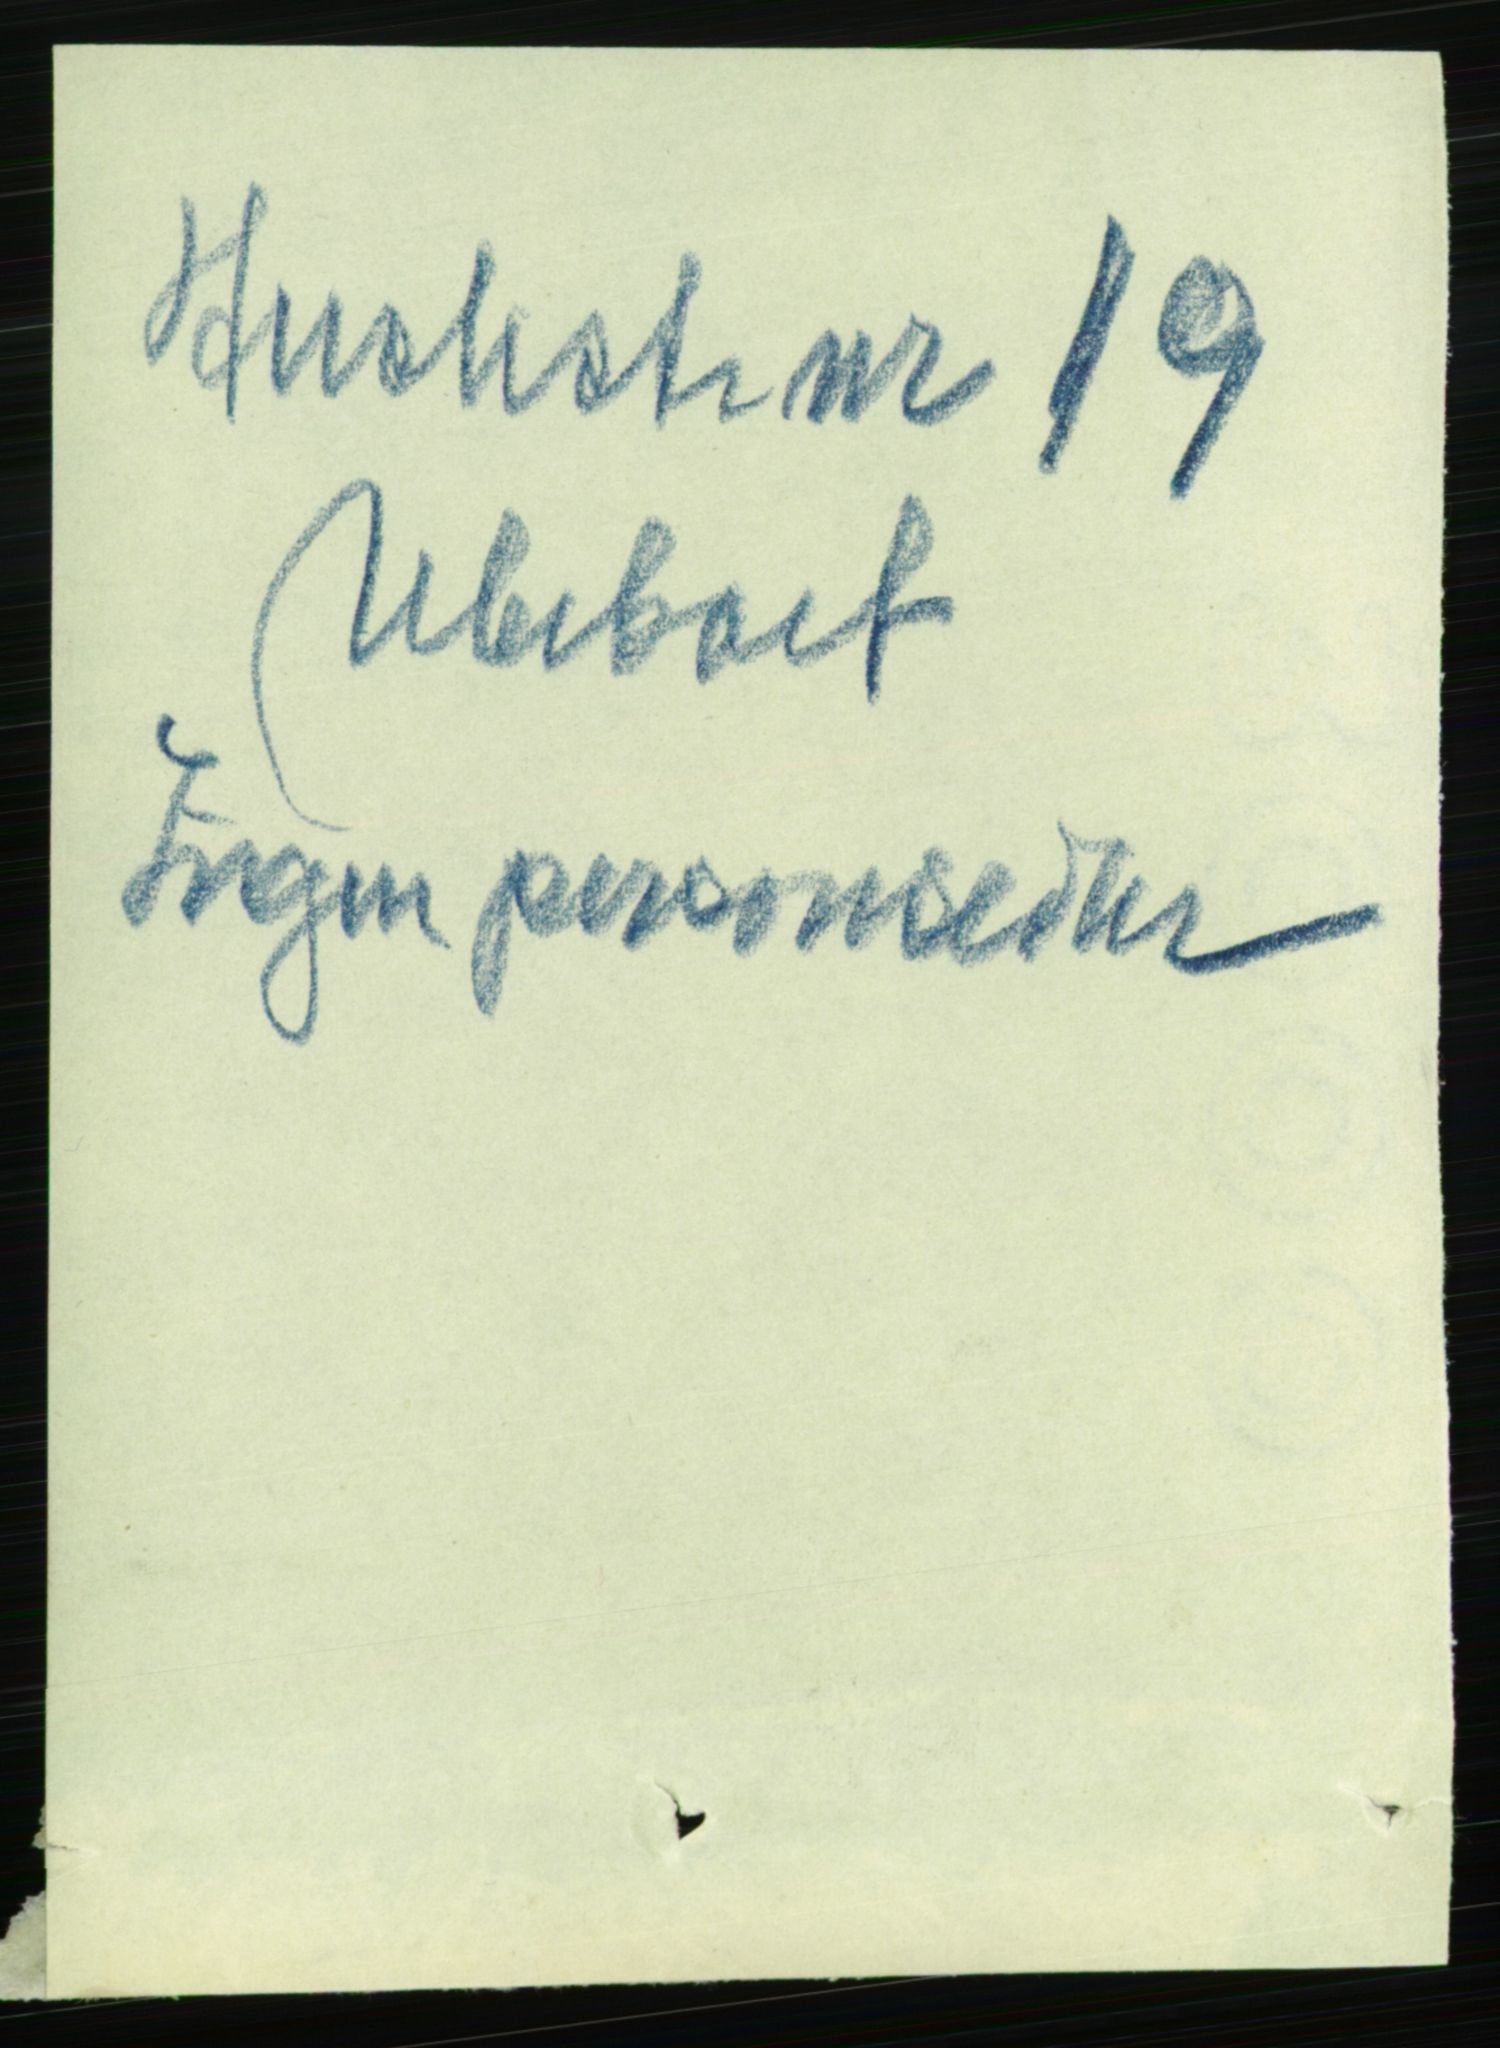 Huslist nr 19
Ubeboet
Ingen personsedler